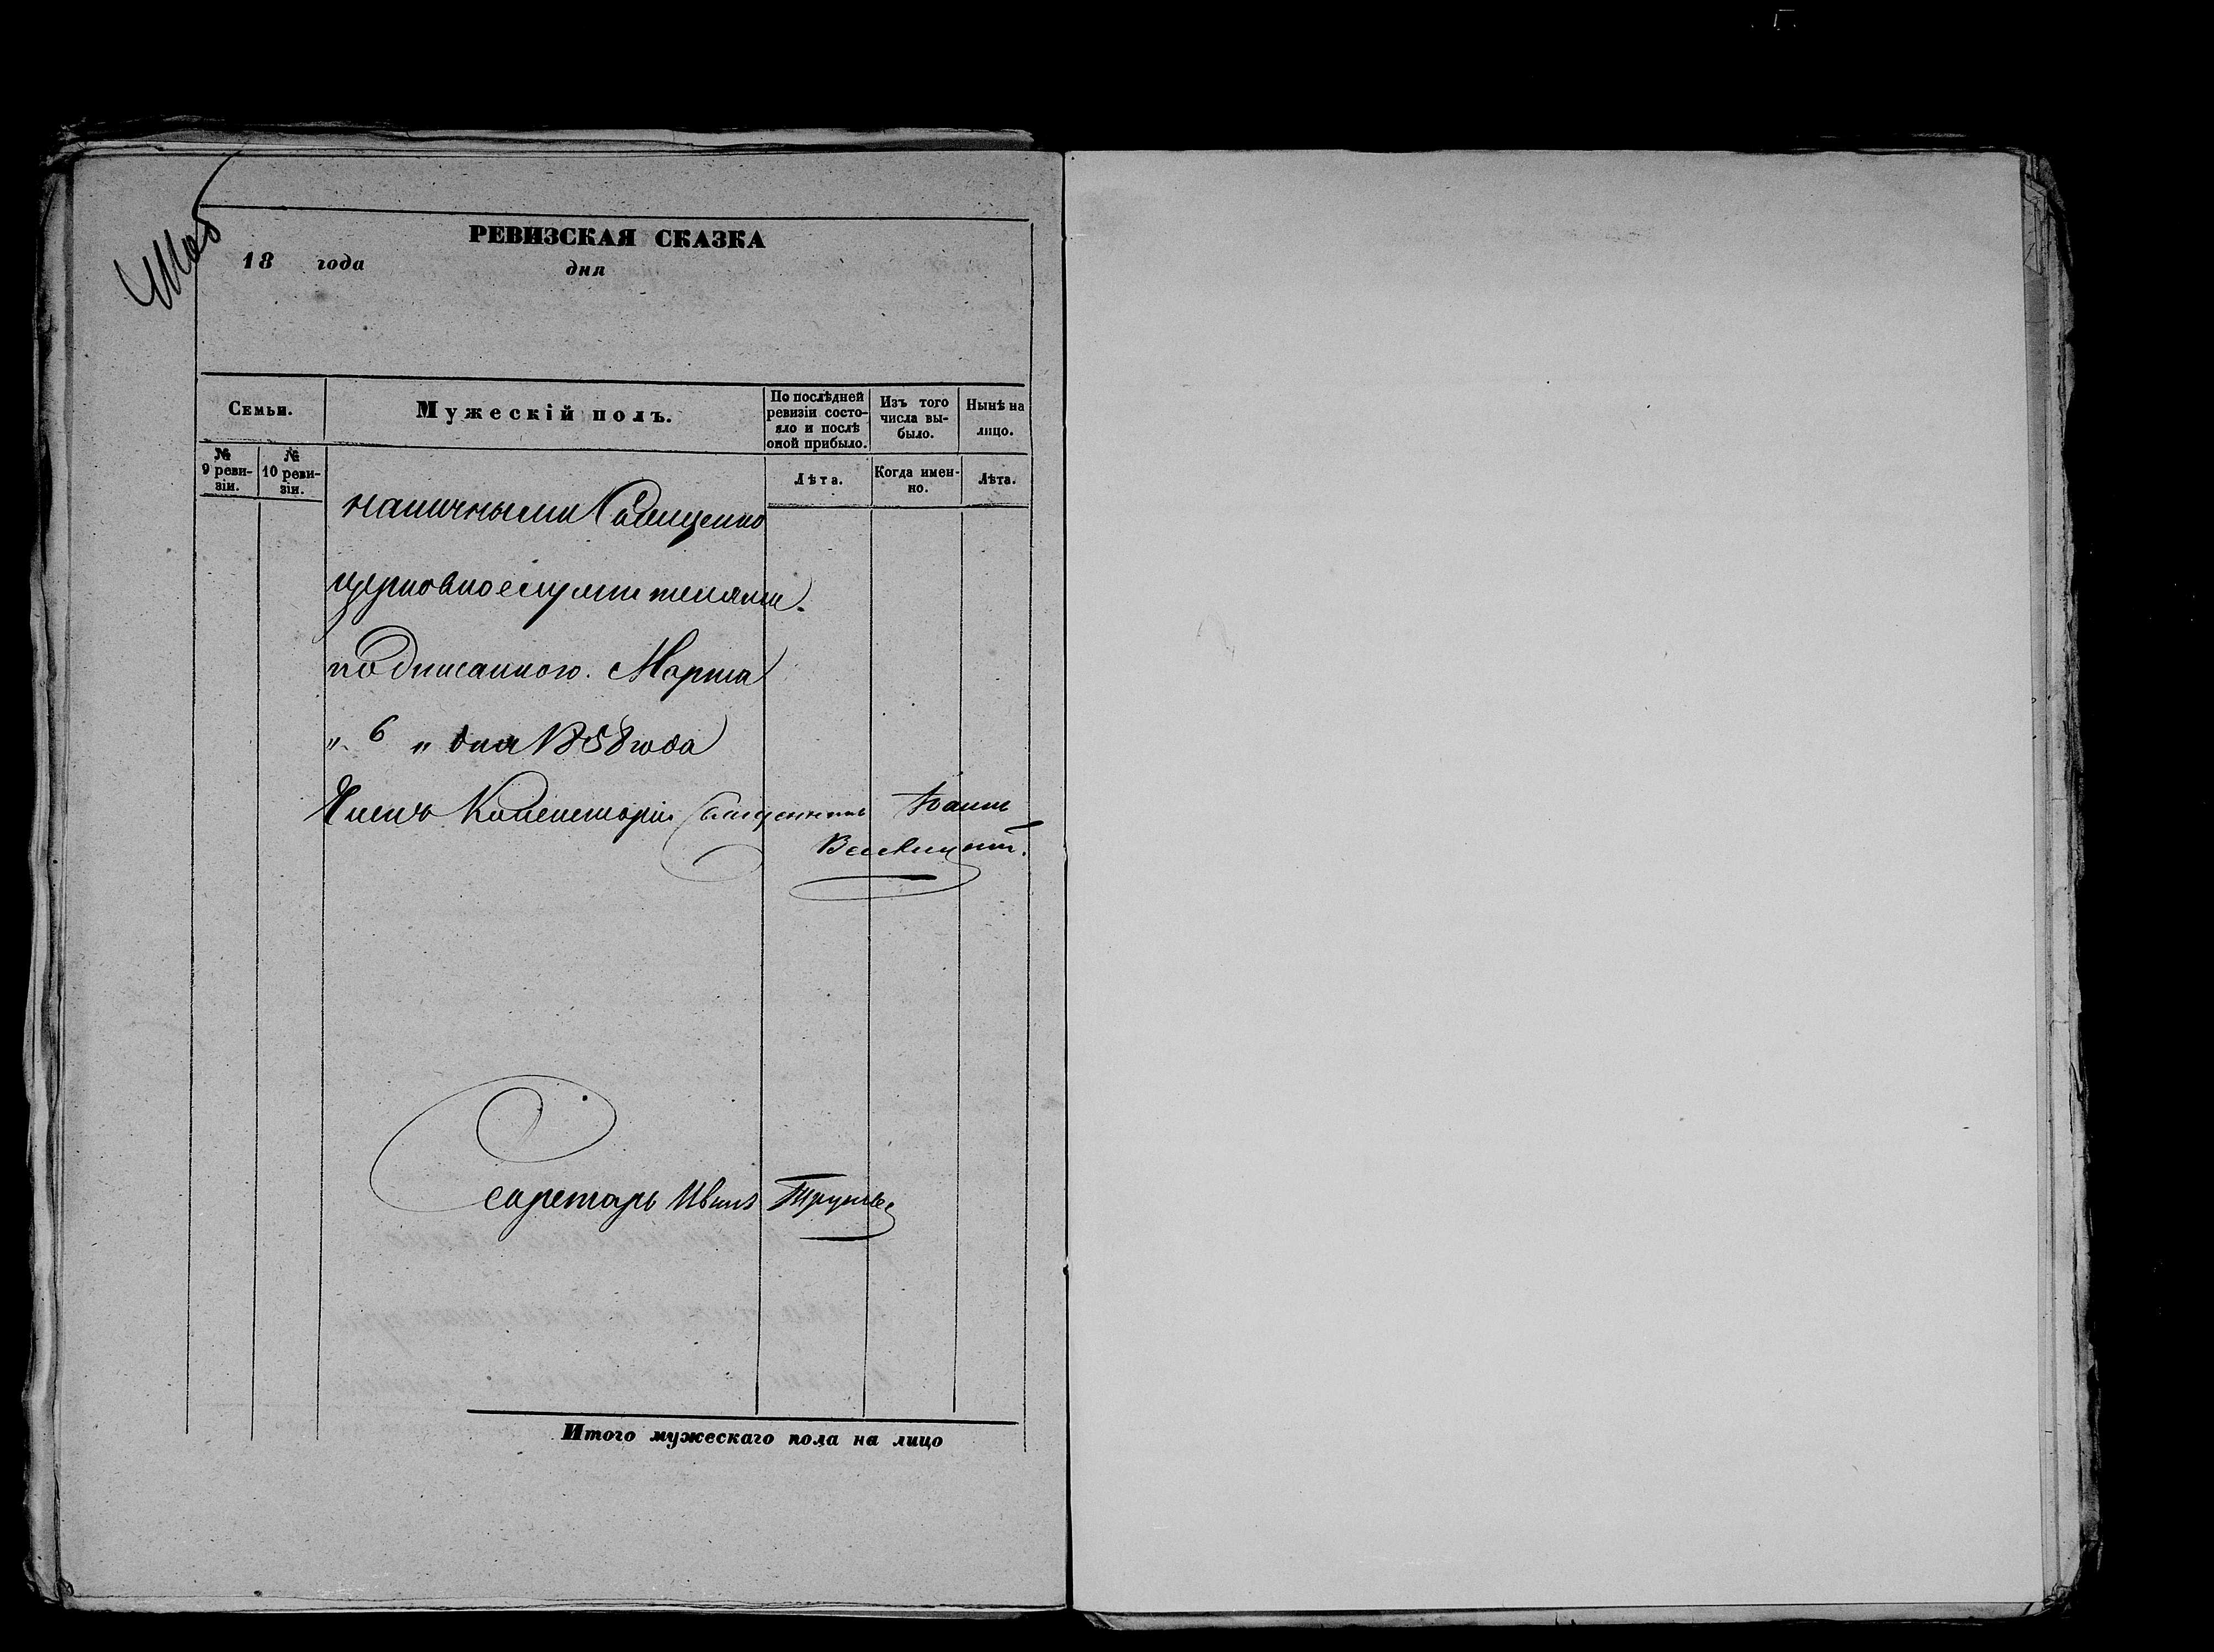 РЕВИЗСКАЯ СКАЗКА
18 года дня
Семьи.
Мужескій полъ.
По послѣдней ревизіи состояло и послѣ оной прибыло.
Изъ того числа выбыло.
Нынѣ на лицо.
№ 9 ревизіи.
№ 10 ревизіи.
Лѣта.
Когда именно.
Лѣта.
наличными Священно
церковнослужителями.
подписанного. Марта
„ 6 „ дня 1858 года
Членъ Консисторіи Священникъ Іоаннъ
Секретарь Иванъ
Итого мужескаго пола на лицо